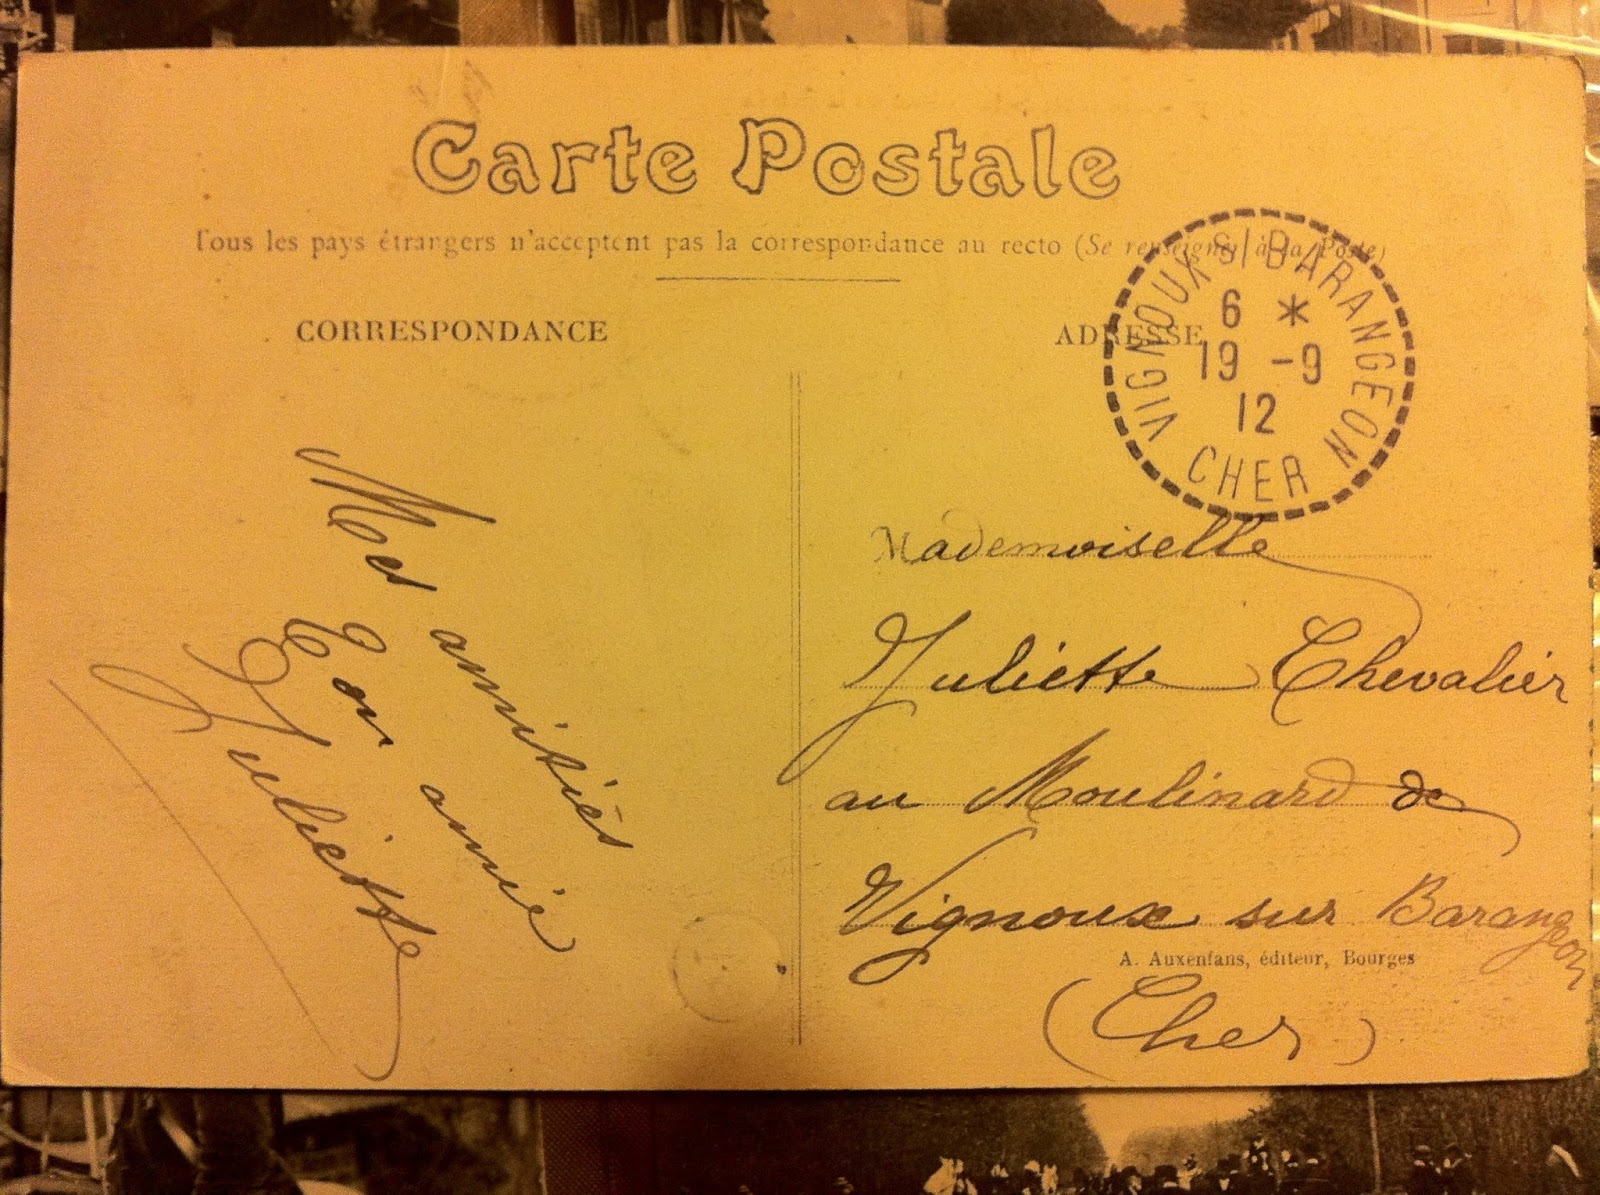 Carte Postale
Tous les pays étrangers n'acceptent pas la correspondance au recto (Se renseigner à la Poste)
CORRESPONDANCE
ADRESSE
VIGNOUX S/BARANGEON
6 *
19 -9
12
CHER
Mes amitiés
Ton amie
Juliette
Mademoiselle
Juliette Chevalier
au Moulinard de
Vignoux sur Barangeon
A. Auxenfans, éditeur, Bourges
(Cher)